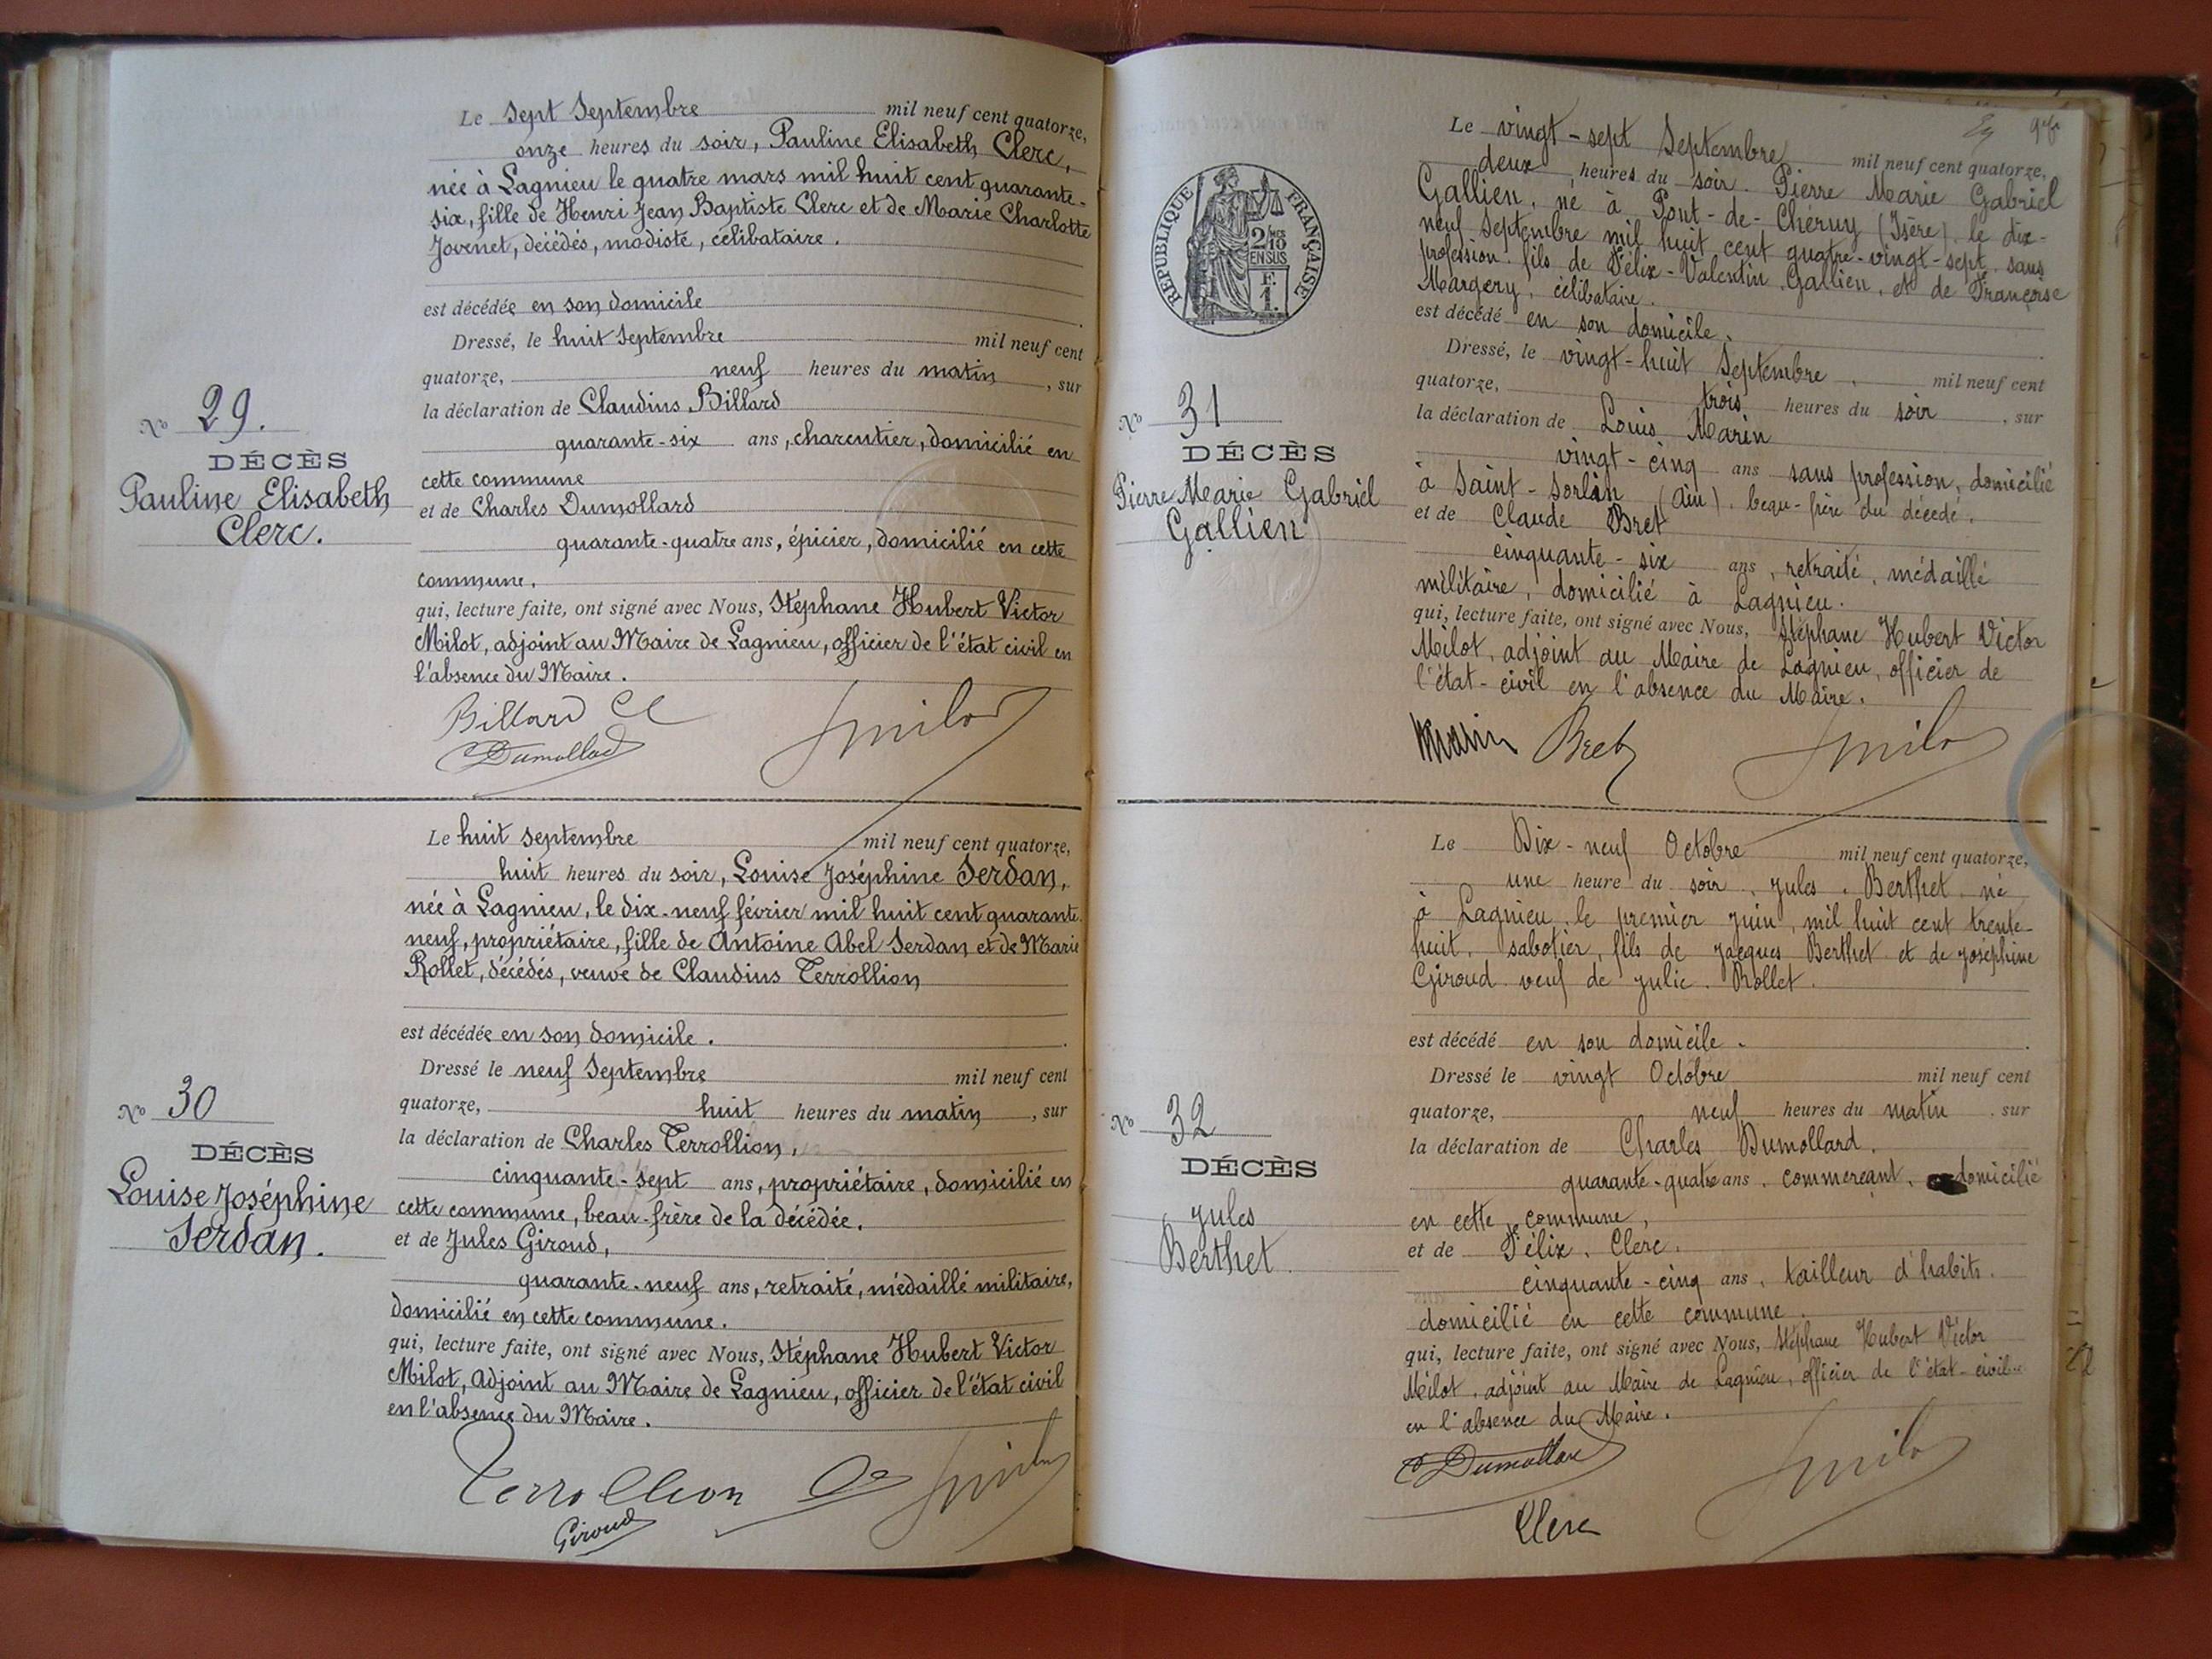 Le sept Septembre mil neuf cent quatorze,
onze heures du soir, Pauline Elisabeth Clerc,
née à Lagnieu le quatre mars mil huit cent quarante-
six, fille de Henri Jean Baptiste Clerc et de Marie Charlotte
Jovenet, décédés, modiste, célibataire.
est décédée en son domicile
Dressé, le huit Septembre mil neuf cent
quatorze, neuf heures du matin, sur
la déclaration de Claudius Billard
quarante-six ans, charcutier, domicilié en
cette commune
et de Charles Dumollard
quarante-quatre ans, épicier, domicilié en cette
commune.
qui, lecture faite, ont signé avec Nous, Stéphane Hubert Victor
Milot, adjoint au Maire de Lagnieu, officier de l'état civil en
l'absence du Maire.
Billard Cl
CDumollard
Smilot
No 29.
DÉCÈS
Pauline Elisabeth
Clerc.
Le huit septembre mil neuf cent quatorze,
huit heures du soir, Louise Joséphine Serdan,
née à Lagnieu, le dix-neuf février mil huit cent quarante
neuf, propriétaire, fille de Antoine Abel Serdan et de Marie
Rollet, décédés, veuve de Claudius Terrollion
est décédée en son domicile.
Dressé le neuf Septembre mil neuf cent
quatorze, huit heures du matin, sur
la déclaration de Charles Terrollion,
cinquante-sept ans, propriétaire, domicilié en
cette commune, beau-frère de la décédée.
et de Jules Giroud,
quarante-neuf ans, retraité, médaillé militaire,
domicilié en cette commune.
qui, lecture faite, ont signé avec Nous, Stéphane Hubert Victor
Milot, Adjoint au Maire de Lagnieu, officier de l'état civil
en l'absence du Maire.
Terrollion
Giroud
Smilot
No 30
DÉCÈS
Louise Joséphine
Serdan.
RÉPUBLIQUE FRANÇAISE
2/10 EN SUS
F. 1.
Le vingt-sept Septembre mil neuf cent quatorze,
deux heures du soir. Pierre Marie Gabriel
Gallien, né à Pont-de-Chéruy (Isère), le dix-
neuf Septembre mil huit cent quatre-vingt-sept, sans
profession, fils de Félix-Valentin Gallien, et de Françoise
Margery, célibataire.
est décédé en son domicile.
Dressé, le vingt-huit Septembre, mil neuf cent
quatorze, trois heures du soir, sur
la déclaration de Louis Marin
vingt-cinq ans sans profession, domicilié
à Saint-Sorlin (Ain), beau-frère du décédé.
et de Claude Bret
cinquante-six ans, retraité, médaillé
militaire, domicilié à Lagnieu.
qui, lecture faite, ont signé avec Nous, Stéphane Hubert Victor
Milot, adjoint au Maire de Lagnieu, officier de
l'état-civil en l'absence du Maire.
Marin Bret Smilot
No 31
DÉCÈS
Pierre Marie Gabriel
Gallien
Le Dix-neuf Octobre mil neuf cent quatorze,
une heure du soir, Jules. Berthet, né
à Lagnieu, le premier juin, mil huit cent trente-
huit, sabotier, fils de Jacques Berthet et de Joséphine
Giroud. veuf de Julie. Rollet.
est décédé en son domicile.
Dressé le vingt Octobre mil neuf cent
quatorze, neuf heures du matin, sur
la déclaration de Charles Dumollard.
quarante-quatre ans, commerçant, domicilié
en cette commune,
et de Félix. Clerc.
cinquante-cinq ans, tailleur d'habits.
domicilié en cette commune.
qui, lecture faite, ont signé avec Nous, Stéphane Hubert Victor
Milot, adjoint au Maire de Lagnieu, officier de l'état-civil
en l'absence du Maire.
CDumollard
Clerc
Smilot
No 32
DÉCÈS
Jules
Berthet.